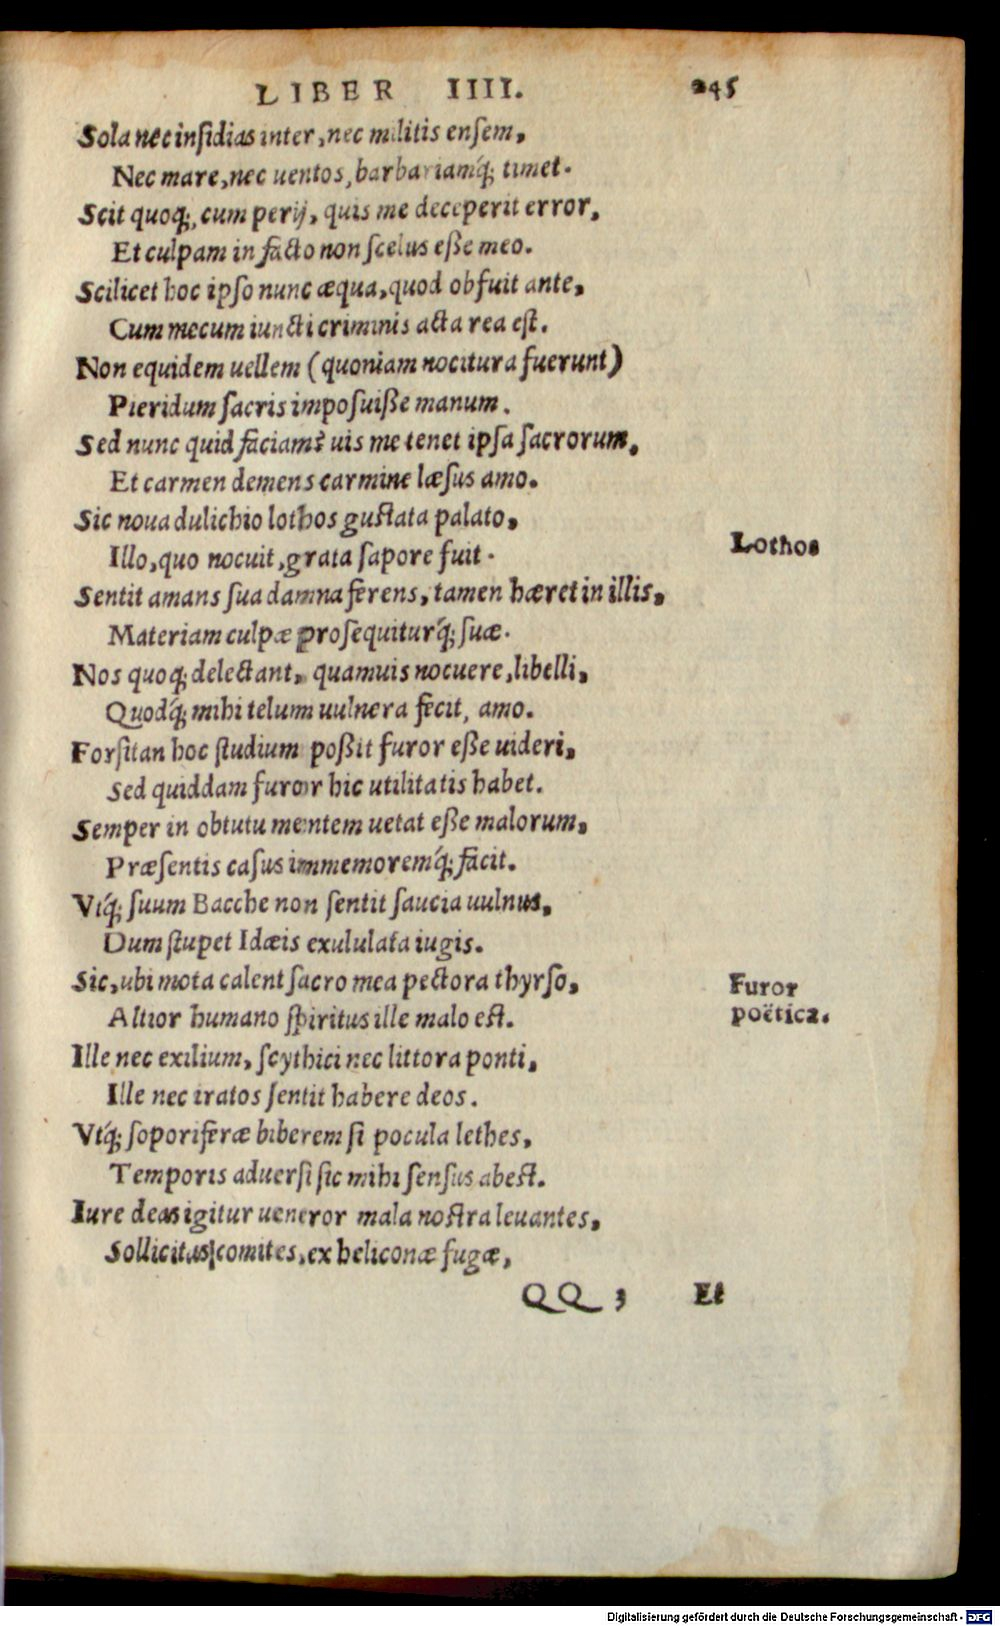 LIBER IIII. 245
Sola nec insidias inter, nec militis ensem,
Nec mare, nec uentos, barbariamq́; timet.
Scit quoq;, cum perij, quis me deceperit error,
Et culpam in facto non scelus eße meo.
Scilicet hoc ipso nunc æqua, quod obfuit ante,
Cum mecum iuncti criminis acta rea est.
Non equidem uellem (quoniam nocitura fuerunt)
Pieridum sacris imposuiße manum.
Sed nunc quid faciam? uis me tenet ipsa sacrorum,
Et carmen demens carmine læsus amo.
Sic noua dulichio lothos gustata palato,
Illo, quo nocuit, grata sapore fuit.
Lothos
Sentit amans sua damna ferens, tamen hæret in illis,
Materiam culpæ prosequiturq́; suæ.
Nos quoq; delectant, quamuis nocuere, libelli,
Quodq́; mihi telum uulnera fecit, amo.
Forsitan hoc studium poßit furor eße uideri,
Sed quiddam furor hic utilitatis habet.
Semper in obtutu mentem uetat eße malorum,
Præsentis casus immemoremq́; facit.
Vtq́; suum Bacche non sentit saucia uulnus,
Dum stupet Idæis exululata iugis.
Sic, ubi mota calent sacro mea pectora thyrso,
Altior humano spiritus ille malo est.
Furor
poëtica.
Ille nec exilium, scythici nec littora ponti,
Ille nec iratos sentit habere deos.
Vtq́; soporiferæ biberem si pocula lethes,
Temporis aduersi sic mihi sensus abest.
Iure deas igitur ueneror mala nostra leuantes,
Sollicitas comites, ex heliconæ fugæ,
QQ 3 Et
Digitalisierung gefördert durch die Deutsche Forschungsgemeinschaft - DFG